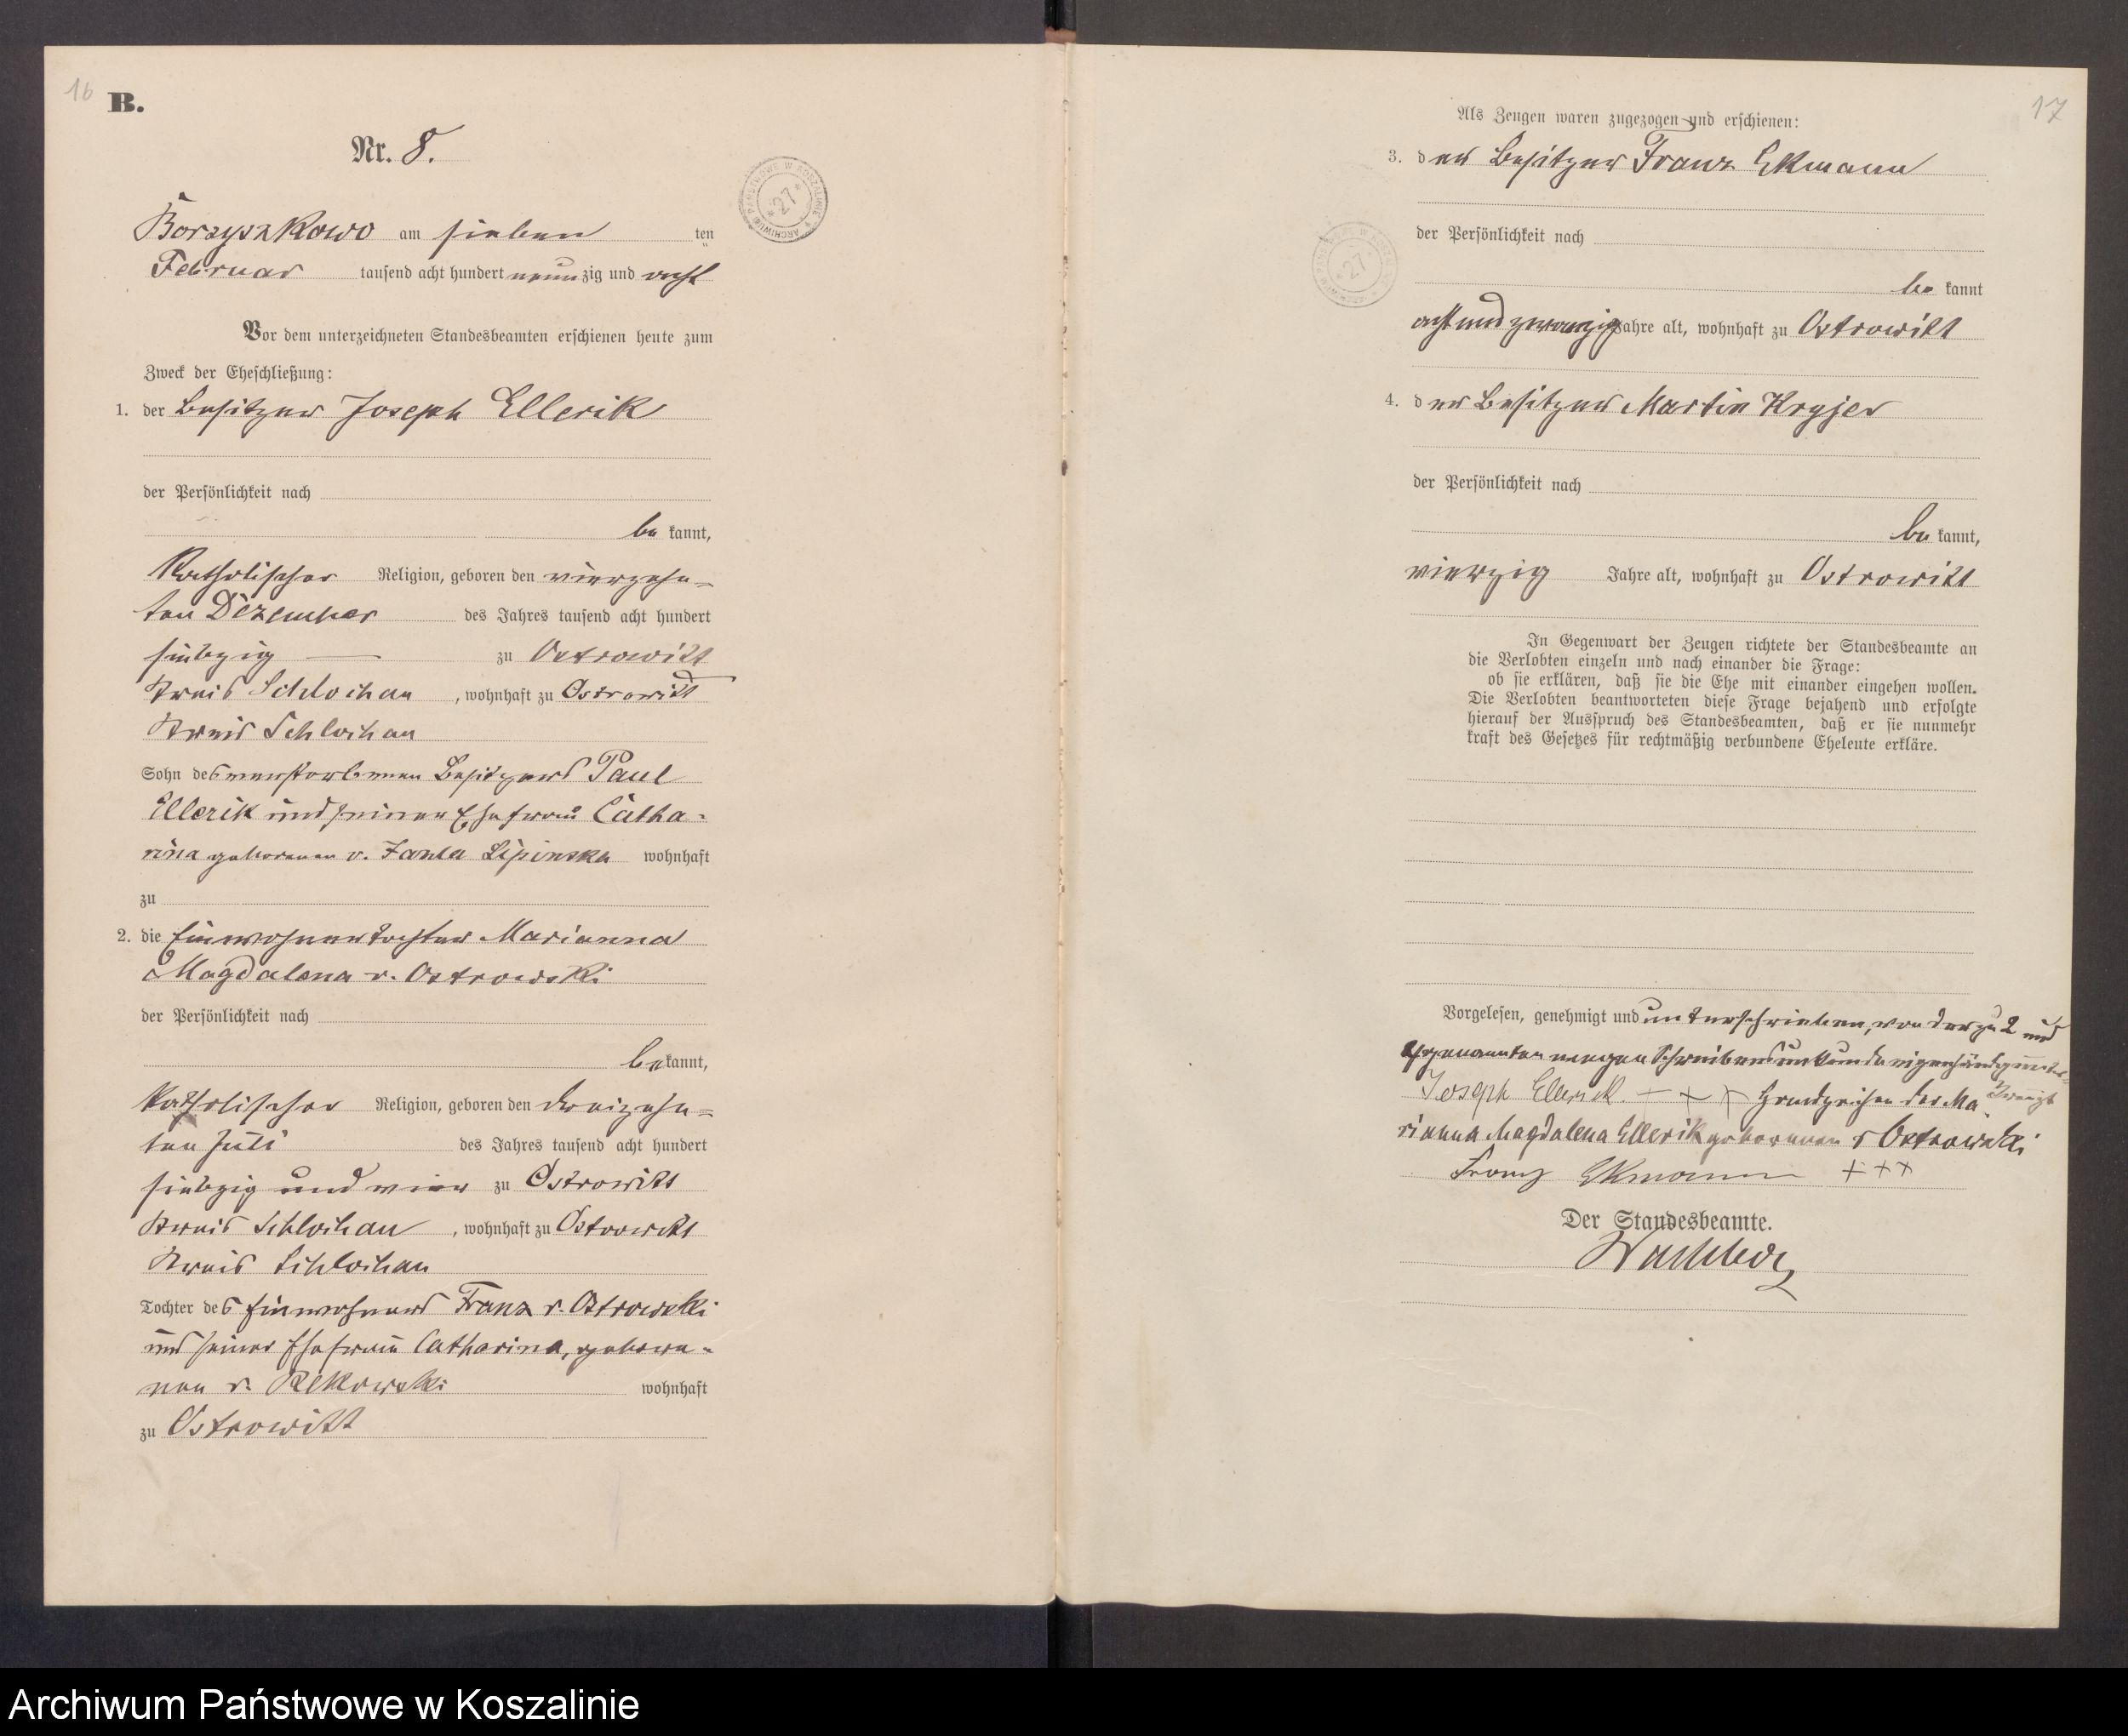 16
B.
Nr. 8.
ARCHIWUM PAŃSTWOWE W KOSZALINIE
* 27 *
Borzyszkowo am sieben ten
Februar tausend acht hundert neunzig und acht
Vor dem unterzeichneten Standesbeamten erschienen heute zum
Zweck der Eheschließung:
1. der Besitzer Joseph Ellerik
der Persönlichkeit nach
be kannt,
Katholischer Religion, geboren den vierzehn-
ten Dezember des Jahres tausend acht hundert
siebzig — zu Ostrowitt
Kreis Schlochau, wohnhaft zu Ostrowitt
Kreis Schlochau
Sohn des verstorbenen Besitzers Paul
Ellerik und seiner Ehefrau Catha-
rina geborenen v. Lipinska wohnhaft
zu
2. die Einwohnertochter Marianna
Magdalena v. Ostrowski
der Persönlichkeit nach
be kannt,
katholischer Religion, geboren den dreizehn-
ten Juli des Jahres tausend acht hundert
siebzig und vier zu Ostrowitt
Kreis Schlochau, wohnhaft zu Ostrowitt
Kreis Schlochau
Tochter des Einwohners Franz v. Ostrowski
und seiner Ehefrau Catharina, gebore-
nen v. Rekowski wohnhaft
zu Ostrowitt
17
Als Zeugen waren zugezogen und erschienen:
3. der Besitzer Franz Ekmann
der Persönlichkeit nach
27
be kannt
acht und zwanzig Jahre alt, wohnhaft zu Ostrowitt
4. der Besitzer Martin Kryjer
der Persönlichkeit nach
be kannt,
vierzig Jahre alt, wohnhaft zu Ostrowitt
In Gegenwart der Zeugen richtete der Standesbeamte an
die Verlobten einzeln und nach einander die Frage:
ob sie erklären, daß sie die Ehe mit einander eingehen wollen.
Die Verlobten beantworteten diese Frage bejahend und erfolgte
hierauf der Ausspruch des Standesbeamten, daß er sie nunmehr
kraft des Gesetzes für rechtmäßig verbundene Eheleute erkläre.
Vorgelesen, genehmigt und unterschrieben, von der zu 2 und
4 genannten wegen Schreibensunkunde eigenhändig unter-
kreuzt
Joseph Ellerik. + + + Handzeichen der Ma-
rianna Magdalena Ellerik geborenen v Ostrowski
Franz Ekmann + + +
Der Standesbeamte.
Archiwum Państwowe w Koszalinie